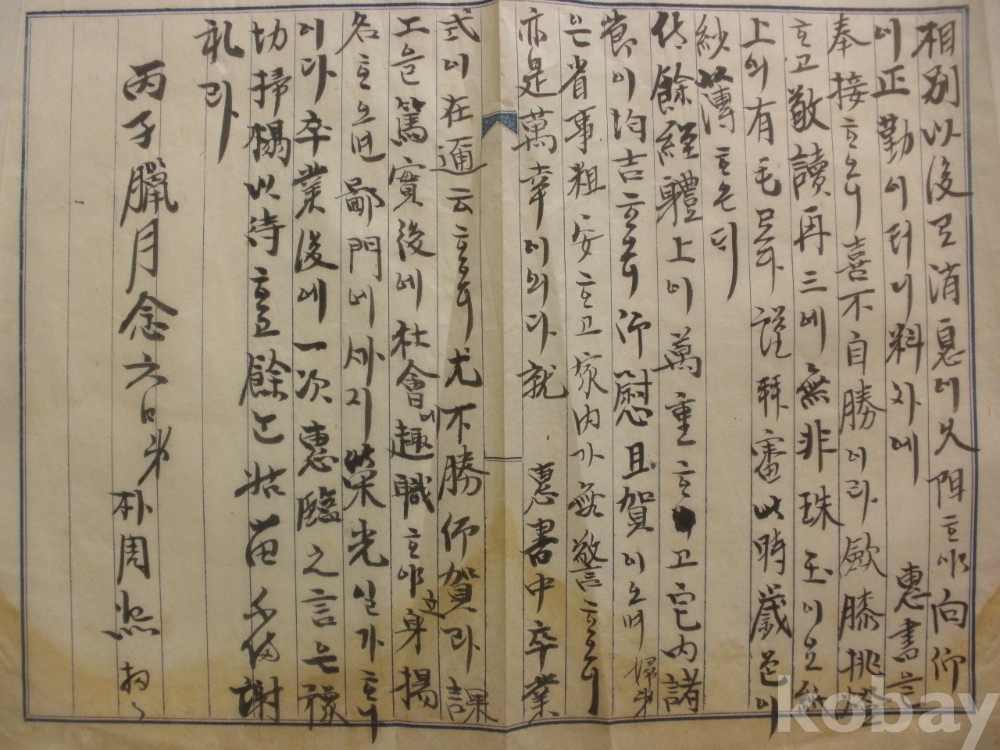 相別以後로消息이久阻하야向仰
이正勤이더니料外에 惠書를
奉接하오니喜不自勝이라歛膝挑燈
하고敬讀再三에無非珠玉이요紙
上의有毛로다謹拜審此時歲色이
紗薄하온디
侍餘經軆上이萬重하고宅内諸
節이均吉하오니仰慰且賀이오며婦弟
은省事粗安하고家内가無警하오니
亦是萬幸이외다就 惠書中卒業
式이在邇云하오니尤不勝仰賀라課
工을篤實後에社會에趣職하야立身揚
名하오면鄙門에까지榮光일가하나
이다卒業後에一次惠臨之言은預
切掃榻以待하고餘는姑留不備謝
礼라
丙子臘月念六日弟
朴周
kobay